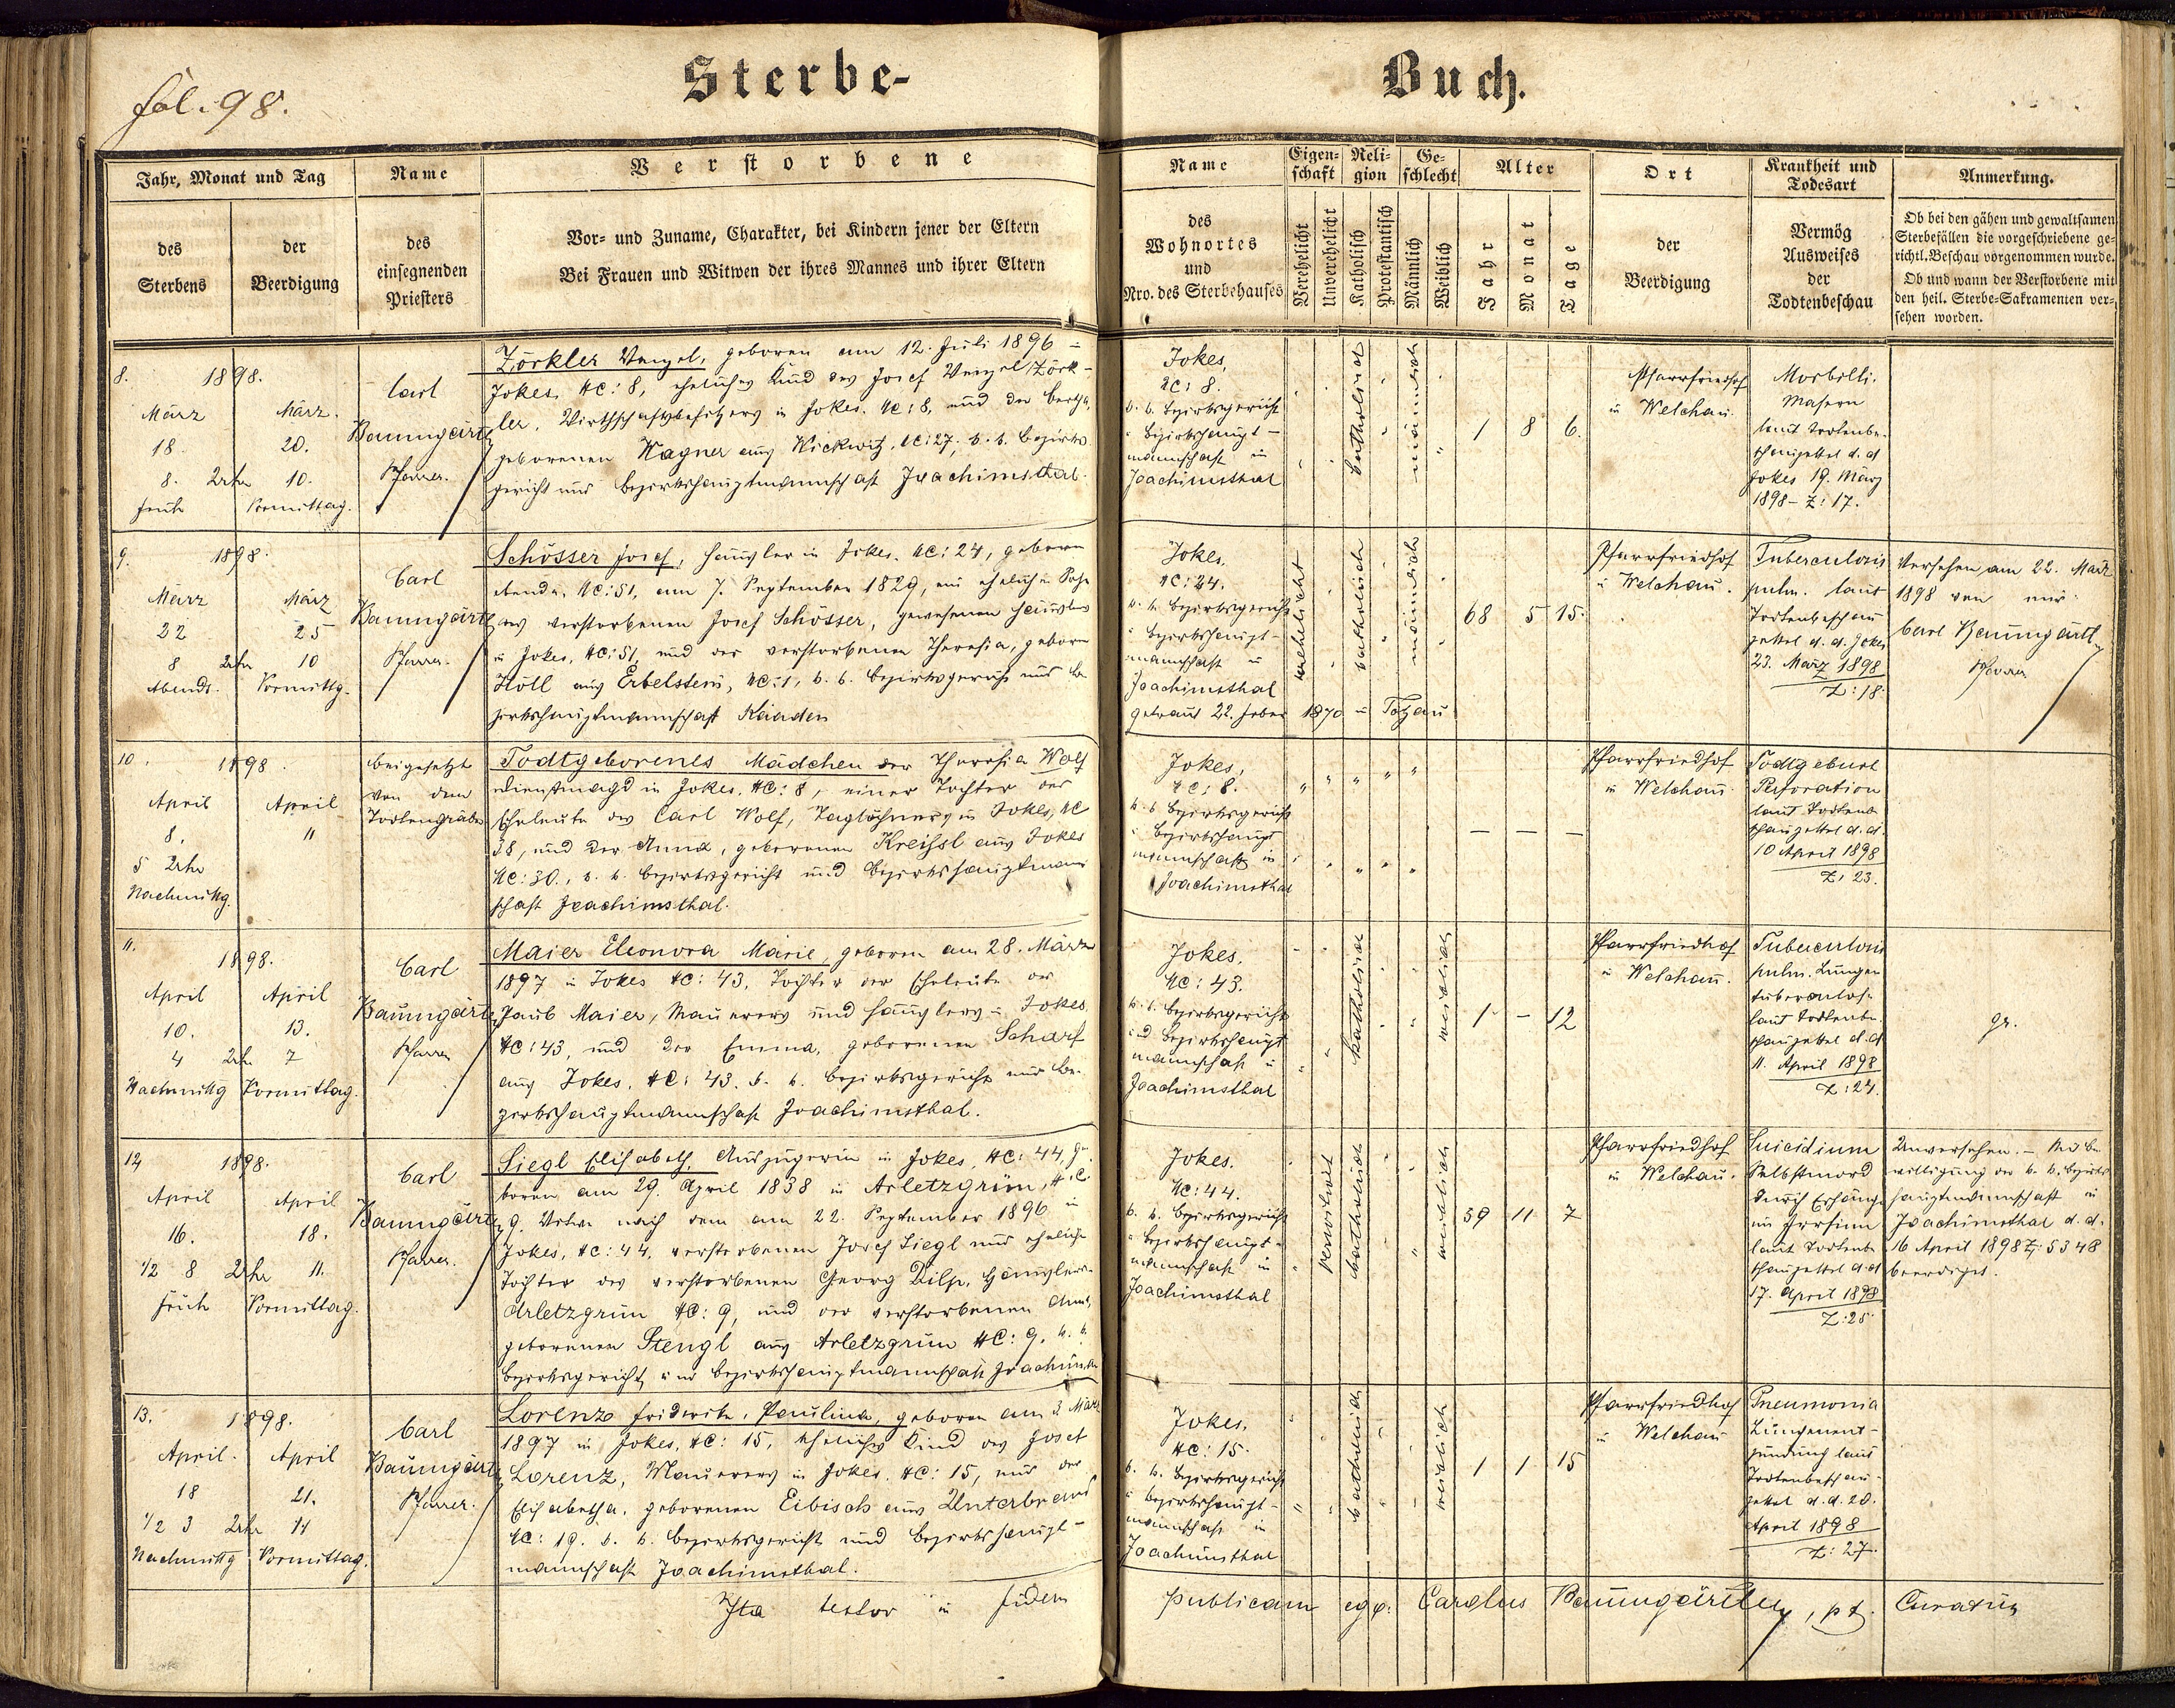 fol. 98.
Sterbe-
Buch.
Jahr, Monat und Tag
des
Sterbens
der
Beerdigung
Name
des
einsegnenden
Priesters
Verstorbene
Vor- und Zuname, Charakter, bei Kindern jener der Eltern
Bei Frauen und Witwen der ihres Mannes und ihrer Eltern
Name
des
Wohnortes
und
Nro. des Sterbehauses
Eigen-
schaft
Verehelicht
Unverehelicht
Reli-
gion
Katholisch
Protestantisch
Ge-
schlecht
Männlich
Weiblich
Alter
Jahr
Monat
Tage
Ort
der
Beerdigung
Krankheit und
Todesart
Vermög
Ausweises
der
Todtenbeschau
Anmerkung.
Ob bei den gähen und gewaltsamen
Sterbefällen die vorgeschriebene ge-
richtl. Beschau vorgenommen wurde.
Ob und wann der Verstorbene mit
den heil. Sterbe-Sakramenten ver-
sehen worden.
8.
1898.
März
18.
8. Uhr
früh
März.
20.
10.
Vormittag.
Carl
Baumgärtl
Pfarrer.
Zörkler Wenzel, geboren am 12. Juli 1896 in
Jokes, NC: 8, eheliches Kind des Josef Wenzel Zörk-
ler, Wirthschaftsbesitzers in Jokes, NC: 8, und der Bertha,
geborenen Wagner aus Wickwitz, NC: 27, k. k. Bezirks
gericht und Bezirkshauptmannschaft Joachimsthal.
Jokes,
NC: 8.
k. k. Bezirksgericht
u. Bezirkshaupt-
mannschaft in
Joachimsthal
katholisch
männlich
1 8 6.
Pfarrfriedhof
in Welchau.
Morbilli.
Masern
laut Todtenbe-
schauzettel d. d.
Jokes 19. März
1898 - Z: 17.
9.
1898.
März
22
8 Uhr
Abends.
März
25
10
Vormittg.
Carl
Baumgärtl
Pfarrer.
Schösser Josef, Häusler in Jokes, NC: 24, geboren
ebenda, NC: 51, am 7. September 1829, ein ehelicher Sohn
des verstorbenen Josef Schösser, gewesenen Häuslers
in Jokes, NC: 51, und der verstorbenen Theresia, geboren
Höll aus Erbelstein, NC: 1, k. k. Bezirksgericht und Be-
zirkshauptmannschaft Kaaden
Jokes,
NC: 24.
k. k. Bezirksgericht
u. Bezirkshaupt-
mannschaft in
Joachimsthal
getraut 22. Feber 1870 in Totzau
verehelicht
katholisch
männlich
68 5 15.
Pfarrfriedhof
in Welchau.
Tuberculosis
pulm. laut
Todtenbeschau
zettel d. d. Jokes
23. März 1898
Z: 18.
Versehen am 22. März
1898 von mir
Carl Baumgärtl,
Pfarrer
10.
1898.
April
8.
5 Uhr
Nachmittg.
April
11
beigesetzt
von dem
Todtengräber
Todtgeborenes Mädchen der Theresia Wolf
Dienstmagd in Jokes, NC: 8, einer Tochter der
Eheleute des Carl Wolf, Taglöhners in Jokes, NC
38, und der Anna, geborenen Kreissl aus Jokes
NC: 30., k. k. Bezirksgericht und Bezirkshauptmann
schaft Joachimsthal.
Jokes,
NC: 8.
k. k. Bezirksgericht
u. Bezirkshaupt
mannschaft in
Joachimsthal
— — —
Pfarrfriedhof
in Welchau
Todtgeburt
Perforation
laut Todtenb
schauzettel d. d.
10 April 1898
Z: 23.
11.
1898.
April
10.
4 Uhr
Nachmittg
April
13.
7
Vormittag.
Carl
Baumgärtl
Pfarrer
Maier Eleonora Marie, geboren am 28. März
1897 in Jokes NC: 43, Tochter der Eheleute des
Jakob Maier, Maurers und Häuslers in Jokes
NC: 43, und der Emma, geborenen Scharf
aus Jokes, NC: 43. k. k. Bezirksgericht und Be-
zirkshauptmannschaft Joachimsthal.
Jokes,
NC: 43.
k. k. Bezirksgericht
und Bezirkshaupt
mannschaft in
Joachimsthal
katholisch
weiblich
1 - 12
Pfarrfriedhof
in Welchau.
Tuberculosis
pulm. Lungen
tuberculos.
laut Todtenbe-
schauzettel d. d.
11. April 1898
Z: 24.
12
1898.
April
16.
1/2 8 Uhr
früh
April
18.
11.
Vormittag.
Carl
Baumgärtl
Pfarrer.
Siegl Elisabeth, Auszügerin in Jokes, NC: 44, ge-
boren am 29. April 1838 in Arletzgrün, NC:
9. Witwe nach dem am 22. September 1896 in
Jokes, NC: 44, verstorbenen Josef Siegl und eheliche
Tochter des verstorbenen Georg Dilp, Häuslers
Arletzgrün NC: 9, und der verstorbenen Anna,
geborenen Stengl aus Arletzgrün NC: 9. k. k.
Bezirksgericht und Bezirkshauptmannschaft Joachimsth
Jokes.
NC: 44.
k. k. Bezirksgericht
u. Bezirkshaupt-
mannschaft in
Joachimsthal
verwitwet
katholisch
weiblich
59 11 7
Pfarrfriedhof
in Welchau.
Suicidium
Selbstmord
durch Erhängen
im Irrsinn
laut Todtenb
schauzettel d. d.
17. April 1898
Z: 25.
Unversehen. - Mit Be-
willigung der k. k. Bezirks
hauptmannschaft in
Joachimsthal d. d.
16 April 1898 Z: 5348
beerdiget.
13.
1898.
April.
18
1/2 3 Uhr
Nachmittg
April
21.
11
Vormittag.
Carl
Baumgärtl
Pfarrer.
Lorenz Friderike, Paulina, geboren am 3. März
1897 in Jokes, NC: 15, eheliches Kind des Josef
Lorenz, Maurers in Jokes, NC: 15, und der
Elisabetha, geborenen Eibisch aus Unterbrand
NC: 19. k. k. Bezirksgericht und Bezirkshaupt-
mannschaft Joachimsthal.
Jokes,
NC: 15.
k. k. Bezirksgericht
u. Bezirkshaupt-
mannschaft in
Joachimsthal
katholisch
weiblich
1 1 15
Pfarrfriedhof
in Welchau
Pneumonia
Lungenent-
zündung laut
Todtenbeschau-
zettel d. d. 20.
April 1898
Z: 27.
Ita testor in fidem publicam Carolus Baumgärtl, pt. Curatus